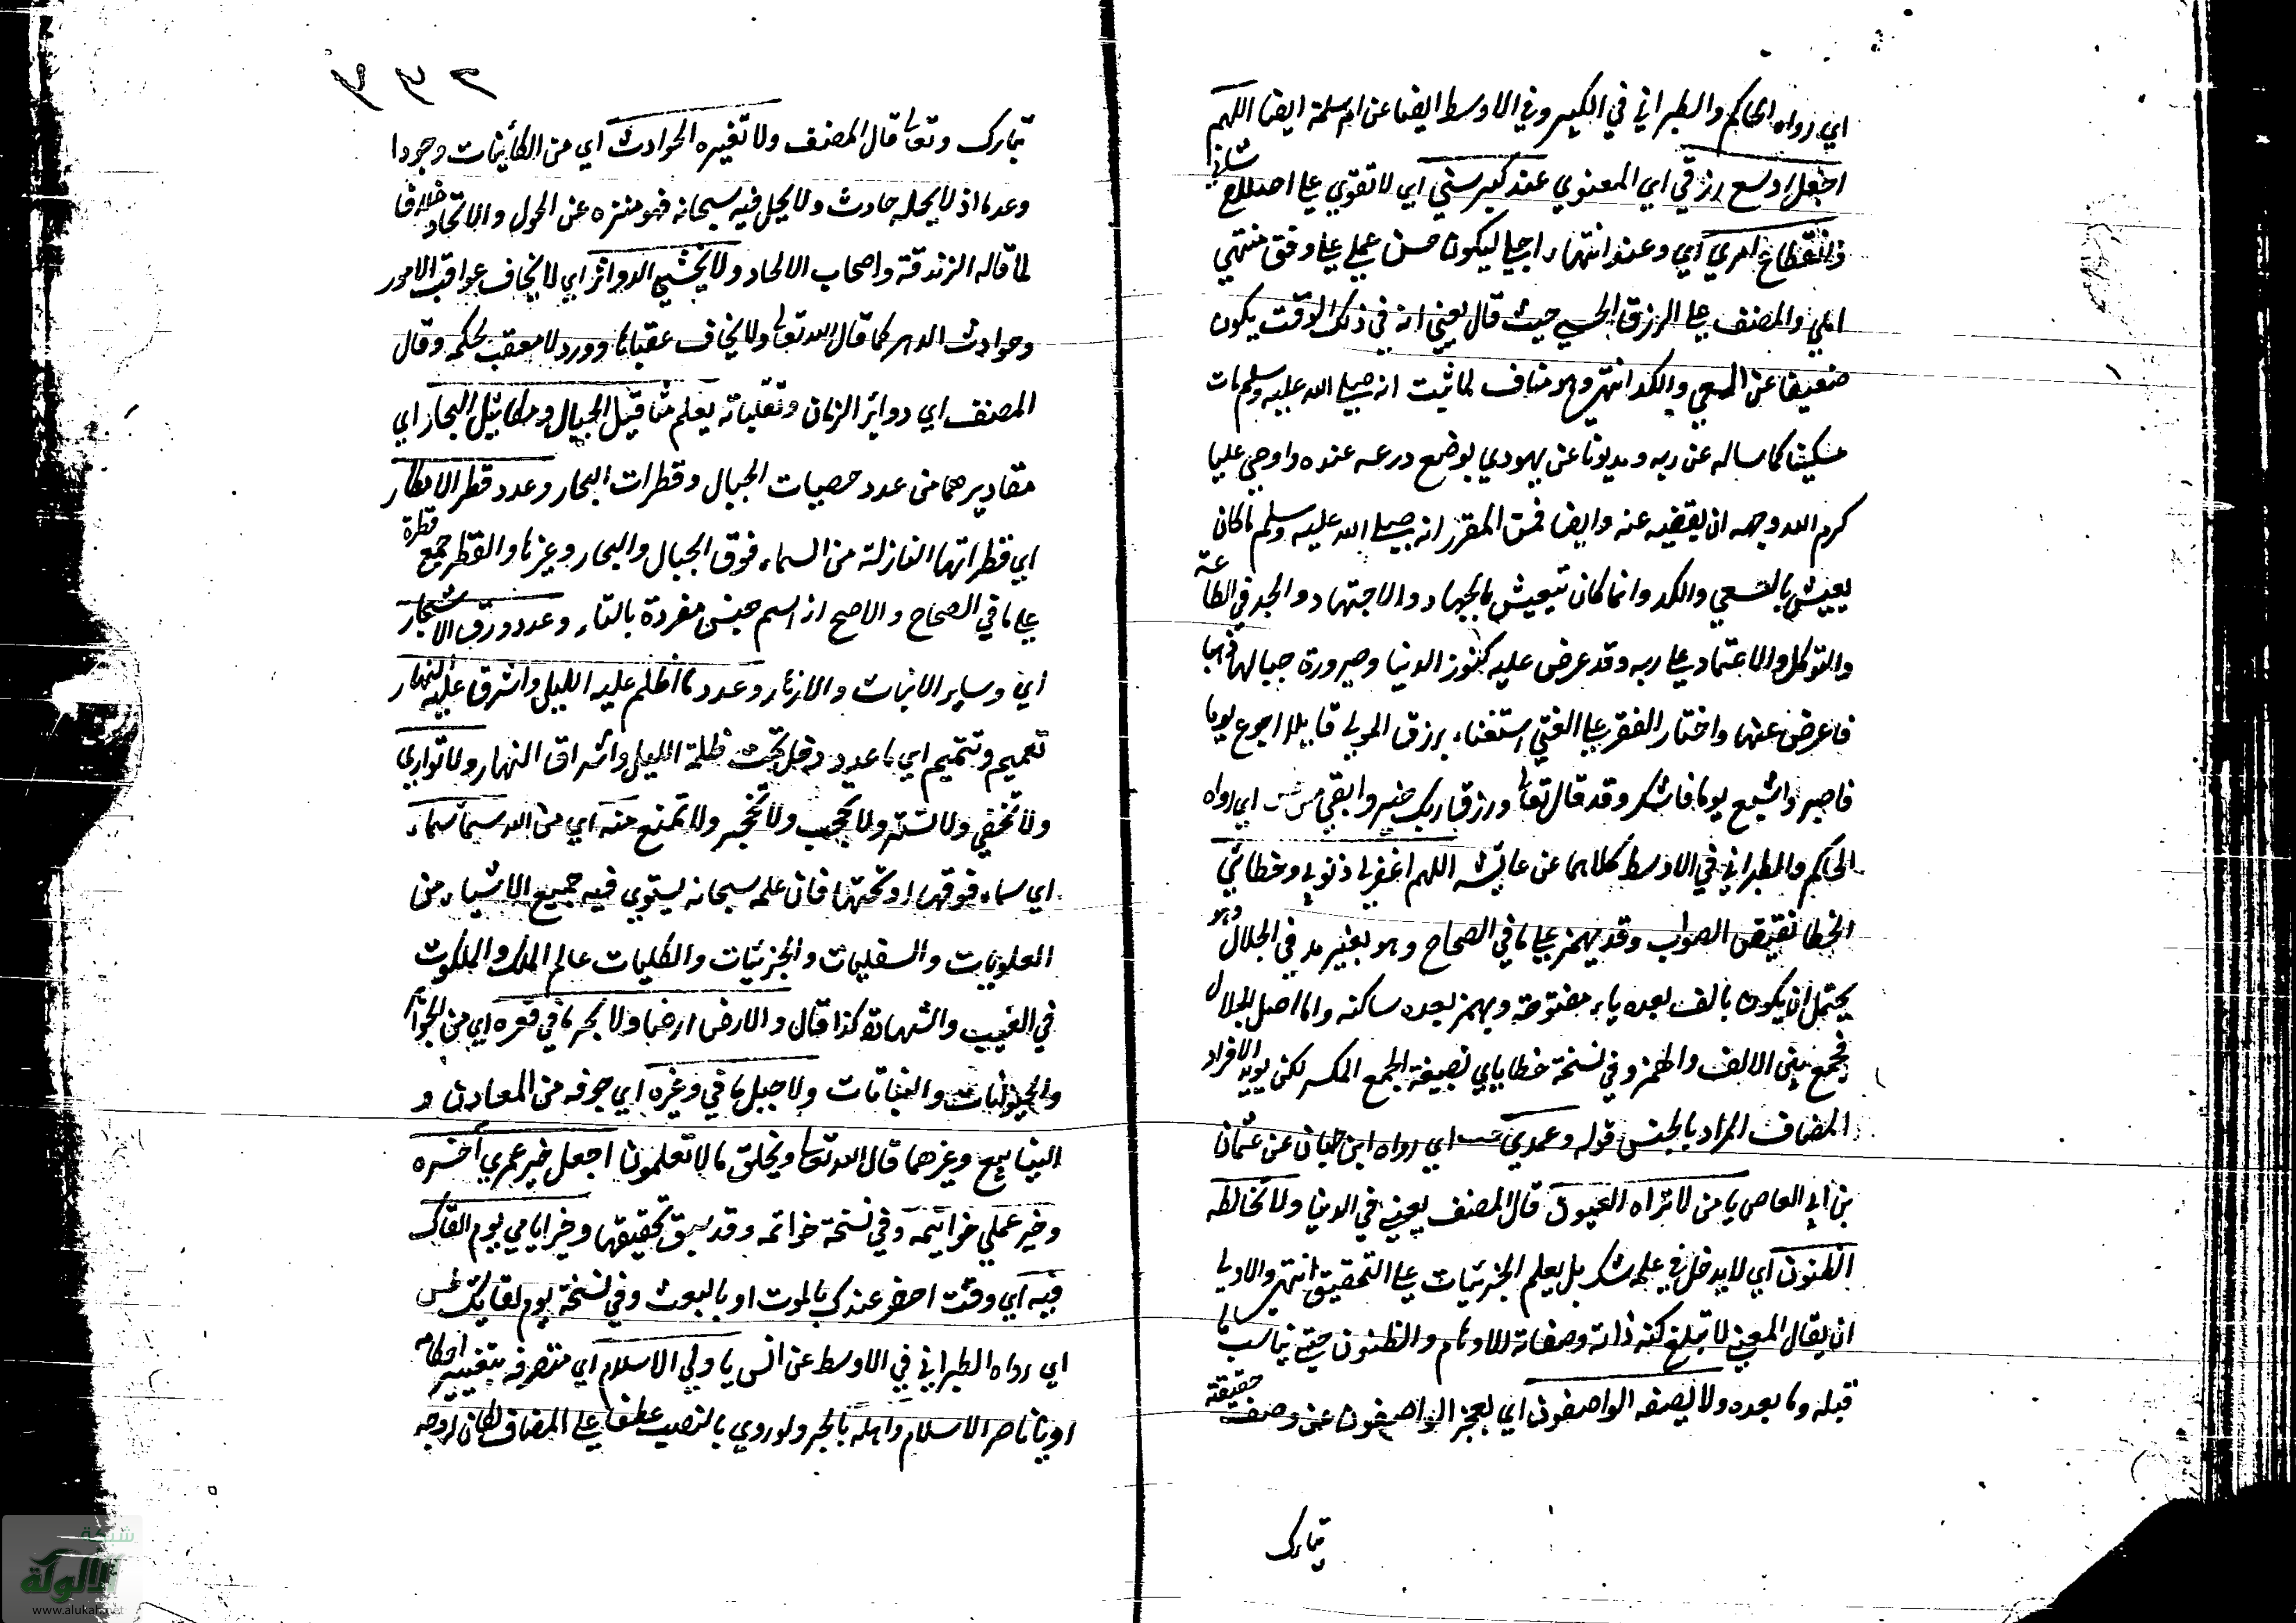 اي رواه الحاكم والطبراني في الكبير وفي الاوسط ايضا عن ام سلمة ايضا اللهم
اجعل اوسع رزقي اي المعنوي عند كبر سني اي لاتقوي علي اصلاح شاني
وانقطاع عمري اي وعند انتهاء اجلي ليكون حسن عملي علي وفق منتهي
املي والمصنف علي الرزق الحسي حيث قال يعني انه في ذلك الوقت يكون
ضعيفا عن السعي والكد انتهي وهو مناف لما ثبت انه صلي الله عليه وسلم مات
مسكينا كما ساله عن ربه ومديونا عن يهودي بوضع درعه عنده واوصي عليا
كرم الله وجهه ان يقضيه عنه وايضا فمن المقرر انه صلي الله عليه وسلم ما كان
يعيش بالسعي والكد وانما كان تيعيش بالجهاد والاجتهاد والجد في الطاعة
والتوكل والاعتماد علي ربه وقد عرض عليه كنوز الدنيا وصيرورة جبالها ذهبا
فاعرض عنها واختار الفقر علي الغني استغناء برزق المولي قايلا اجوع يوما
فاصبر واشبع يوما فاشكر وقد قال تعالي ورزق ربك خير وابقي مس طس اي رواه
الحاكم والطبراني في الاوسط كلاهما عن عايشه اللهم اغفر لي ذنوبي وخطائي
الخطا نقيض الصواب وقد يهمز علي ما في الصحاح وهو بغير مد في الجلال وهو
يحتمل ان يكون بالف بعده ياء مفتوحة وبهمز بعده ساكنه واما اصل الجلال
فجمع بين الالف والهمز وفي نسخة خطاياي بصيغة الجمع المكسر لكن يويد الافراد
المضاف المراد بالجنس قوله وعمدي حب اي رواه ابن حبان عن عثمان
بن ابي العاص يا من لاتراه العيون قال المصنف يعني في الدنيا ولاتخالطه
الظنون اي لايدخل في علمه شك بل يعلم الجزئيات علي التحقيق انتهي والاولي
ان يقال المعني لاتبلغ كنه ذاته وصفاته للاوهام والظنون حتي يناسب ما
قبله وما بعده ولايصفه الواصفون اي يعجز الواصفون عن وصف حقيقته
تبارك
تبارك وتعالي قال المصنف ولاتغيره الحوادث اي من الكائنات وجودا
وعدما اذ لايحله حادث ولايحل فيه سبحانه فهو منزه عن الحول والاتحاد خلافا
لما قاله الزندقة واصحاب الالحاد ولايخشي الدوائر اي لايخاف عواقب الامور
وحوادث الدهر كما قال الله تعالي ولايخاف عقباها وورد لامعقب لحكمه وقال
المصنف اي دوائر الزمان وتقلباته يعلم مثاقيل الجبال ومكائيل البحار اي
مقاديرهما من عدد حصيات الجبال وقطرات البحار وعدد قطر الامطار
اي قطراتها النازلة من السماء فوق الجبال والبحار وغيرها والقطر جمع قطرة
علي ما في الصحاح والاصح انه اسم جنس مفردة بالتاء وعدد ورق الاشجار
اي وساير الانبات والازهار وعدد ما اظلم عليه الليل واشرق عليه النهار
تعميم وتتميم اي ما عدد دخل تحت ظلمة الليل واشراق النهار ولاتواري
ولاتخفي ولاتستر ولاتحجب ولاتحجر ولاتمنع منه اي من الله سبحانه سماء
اي سماء فوقها او تحتها فان علمه سبحانه يستوي فيه جميع الاشياء من
العلويات والسفليات والجزئيات والكليات عالم الملك والملكوت
في الغيب والشهادة كذا قال والارض ارضا ولابحر ما في قعره اي من الجواهر
والحيوانات والنباتات ولاجبل ما في وعره اي جوفه من المعادن و
الينابيع وغيرهما قال الله تعالي ويخلق ما لاتعلمون اجعل خير عمري اخره
وخير عملي خواتيمه وفي نسخة خواتمه وقد سبق تحقيقها وخير ايامي يوم القاك
فيه اي وقت احضر عندك بالموت او بالبعوث وفي نسخة يوم لقايك طس
اي رواه الطبراني في الاوسط عن انس يا ولي الاسلام اي متصرفه بتغيير احكامه
او يا ناصر الاسلام واهله بالجر ولو روي بالنصب عطفا علي المضاف لكان له وجه